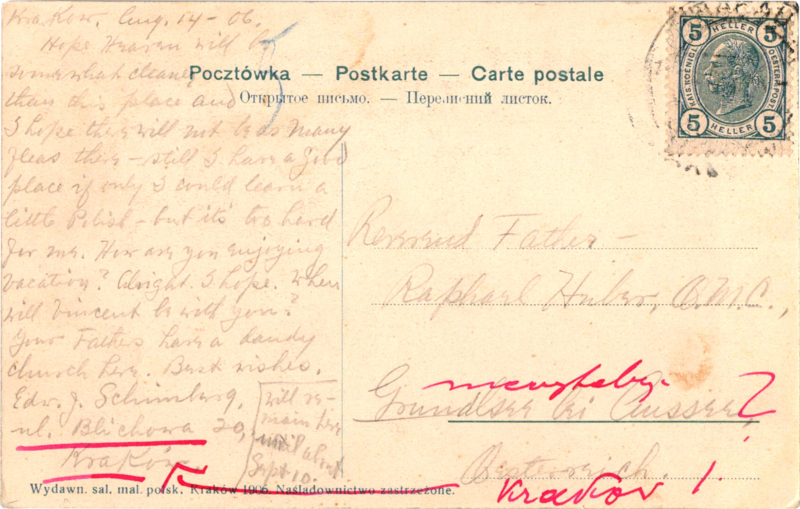 Krakow. Aug. 14 - 06.
Hope Heaven will be
somewhat cleaner
than this place and
I hope there will not be as many
fleas there - still I have a good
place if only I could learn a
little Polish - but it's too hard
for me. How are you enjoying
vacation? Alright I hope. When
will Vincent be with you?
Your Fathers have a dandy
church here. Best wishes.
Edw. J. Schimberg,
ul. Blichowa 20,
Kraków.
will re-
main here
until about
Sept 10.
Pocztówka — Postkarte — Carte postale
Открытое письмо. — Переписний листок.
5 HELLER 5
KAIS. KOENIGL. OESTERR. POST
5 HELLER 5
Reverend Father -
Raphael Huber, O.M.C.,
Grundlsee bei Aussee,
Oesterreich.
?
Krakow !
Wydawn. sal. mal. polsk. Kraków 1906. Naśladownictwo zastrzeżone.